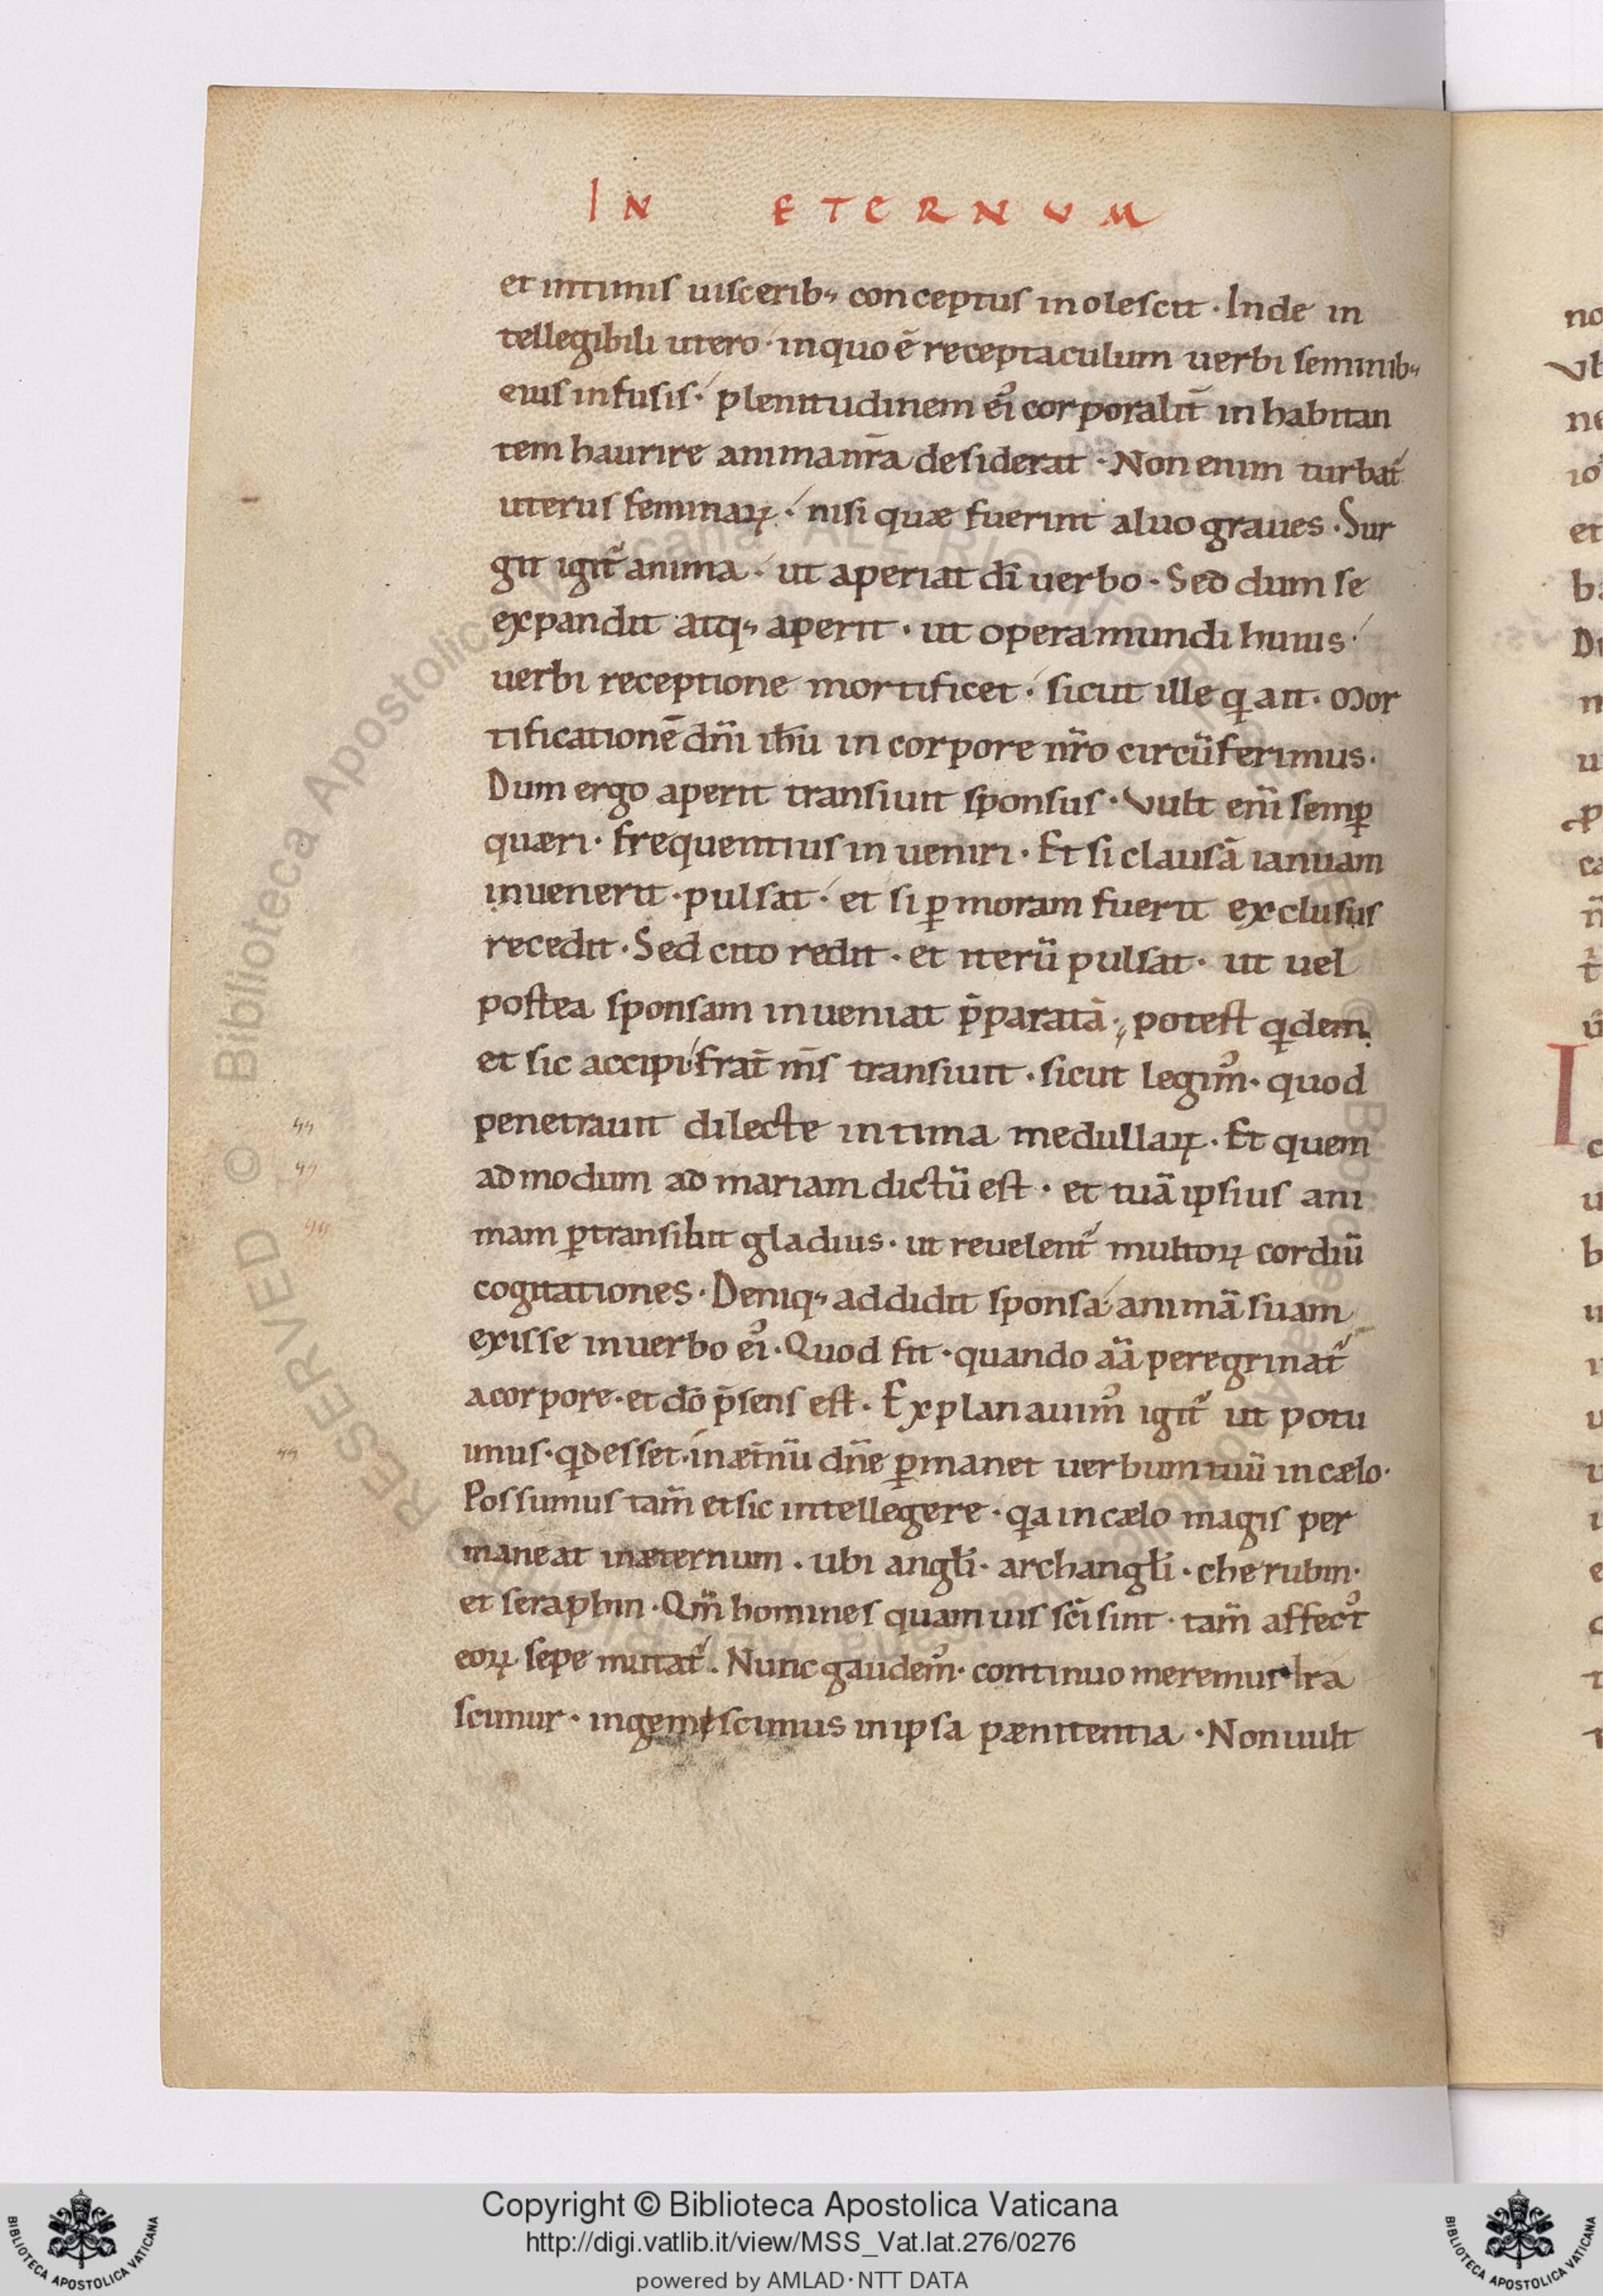 IN ETERNUM
et intimis uisceribꝫ conceptus inolescit · Inde in
tellegibili utero · inquo ē receptaculum uerbi seminibꝫ
eius infusis · plenitudinem ei᾽ corporalit̄ inhabitan
tem haurire anima nr̄a desiderat · Non enim turbat᾽
uterus feminaꝝ · nisi quæ fuerint aluo graues · Sur
git igit᾽ anima · ut aperiat dī uerbo · Sed dum se
expandit atqꝫ aperit · ut opera mundi huius ·
uerbi receptione mortificet · sicut ille q ait · Mor
tificationē dn̄i ih̄u in corpore nr̄o circūferimus ·
Dum ergo aperit transiuit sponsus · Vult eni̅ semꝑ
quæri · frequentius inueniri · Et si clausā ianuam
inuenerit · pulsat · et si ꝑ moram fuerit exclusus
recedit · Sed cito redit · et iterū pulsat · ut uel
postea sponsam inueniat p̄paratā · potest qdem
et sic accipi frat̄ m̄s transiuit · sicut legim᾽ · quod
penetrauit dilecte intima medullaꝝ · Et quem
admodum ad mariam dictū est · et tuā ipsius ani
mam ꝑtransibit gladius · ut reuelent᾽ multoꝝ cordiū
cogitationes · Deniqꝫ addidit sponsa animā suam
exisse inuerbo ei᾽ · Quod fit · quando aīa peregrinat᾽
acorpore · et dō p̄sens est · Explanauim᾽ igit᾽ ut potu
imus · qd esset · inæt̄nū dn̄e ꝑmanet uerbum tuū in cælo ·
Possumus tam̄ et sic intellegere · qa in cælo magis per
maneat inæternum · ubi angl̄i · archangl̄i · cherubin ·
et seraphin · Qm̄ homines quam uis sc̄i sint · tam̄ affect᾽
eoꝝ sepe mutat᾽ · Nunc gaudem᾽ · continuo meremur · Ira
scimur · ingemescimus inipsa pænitentia · Non uult
no
Vb
ne
io
et
b
Di
n
u
ꝓ
ca
n̄
t
ū
I
c
u
b
u
i
u
u
i
e
c
t
t
© Biblioteca Apostolica Vaticana ALL RIGHTS RESERVED
Copyright © Biblioteca Apostolica Vaticana
http://digi.vatlib.it/view/MSS_Vat.lat.276/0276
powered by AMLAD·NTT DATA
BIBLIOTECA APOSTOLICA VATICANA
BIBLIOTECA APOSTOLICA VATICANA